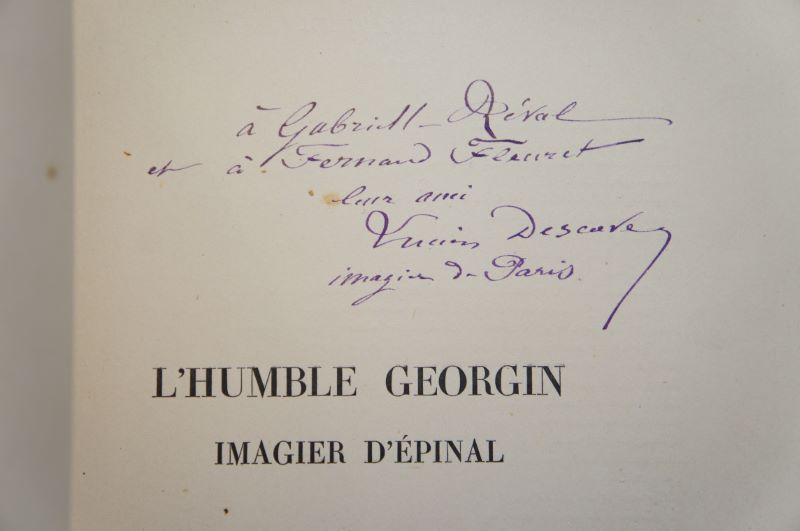 à Gabrielle Réval
et à Fernand Fleuret
leur ami
Lucien Descaves
imagier de Paris
L'HUMBLE GEORGIN
IMAGIER D'ÉPINAL